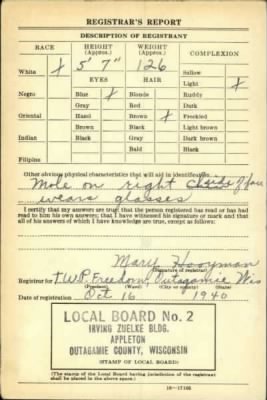 REGISTRAR'S REPORT
DESCRIPTION OF REGISTRANT
RACE HEIGHT (Approx.) WEIGHT (Approx.) COMPLEXION
White X 5' 7" 126 Sallow
EYES HAIR Light X
Negro Blue X Blonde Ruddy
Gray Red Dark
Oriental Hazel Brown X Freckled
Brown Black Light brown
Indian Black Gray Dark brown
Bald Black
Filipino
Other obvious physical characteristics that will aid in identification
Mole on right side of face
wears glasses
I certify that my answers are true; that the person registered has read or has had
read to him his own answers; that I have witnessed his signature or mark and that
all of his answers of which I have knowledge are true, except as follows:
Mary Hooyman
(Signature of registrar)
Registrar for T.W.P. Freedom, Outagamie Wis
(Precinct) (Ward) (City or county) (State)
Date of registration Oct 16 1940
LOCAL BOARD No. 2
IRVING ZUELKE BLDG.
APPLETON
OUTAGAMIE COUNTY, WISCONSIN
(STAMP OF LOCAL BOARD)
(The stamp of the Local Board having jurisdiction of the registrant
shall be placed in the above space.)